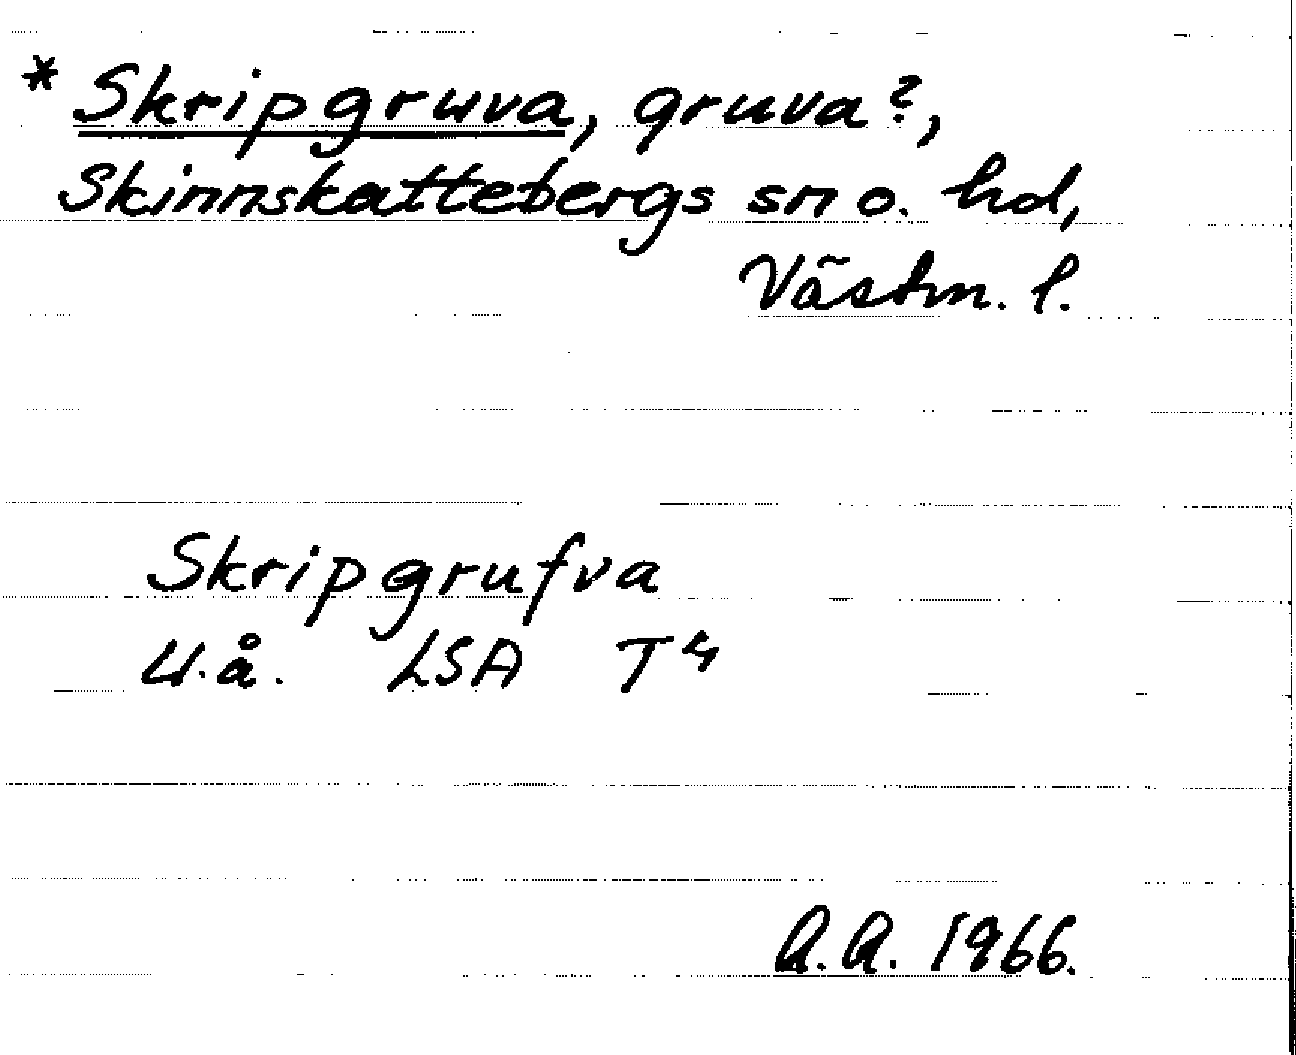 * Skripgruva, gruva?,
Skinnskattebergs sn o. hd,
Västm. l.
Skripgrufva
U.å. LSA T4
A.A. 1966.